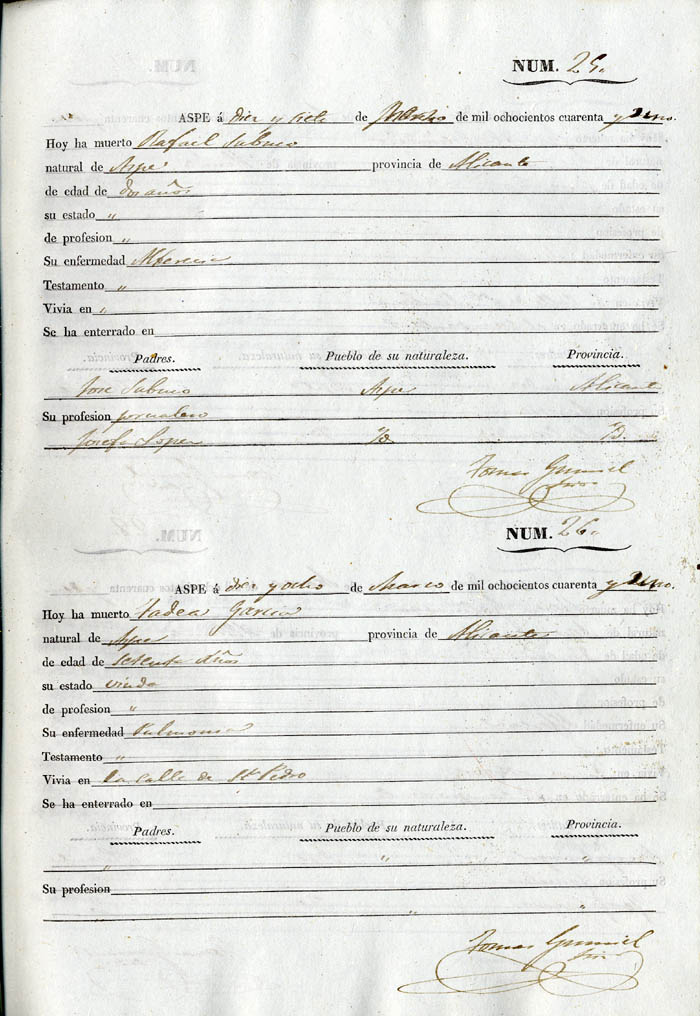 NUM. 25.
ASPE á diez y siete de de mil ochocientos cuarenta y uno.
Hoy ha muerto Rafael Sabuco
natural de Aspe provincia de Alicante
de edad de dos años
su estado "
de profesion "
Su enfermedad Alferecia
Testamento "
Vivia en "
Se ha enterrado en
Padres. Pueblo de su naturaleza. Provincia.
Jose Sabuco Aspe Alicante
Su profesion jornalero
Josefa Lopez Yd. Yd.
Tomas
NUM. 26.
ASPE á diez y ocho de Marzo de mil ochocientos cuarenta y uno.
Hoy ha muerto Tadea Garcia
natural de Aspe provincia de Alicante
de edad de setenta años
su estado viuda
de profesion "
Su enfermedad Pulmonia
Testamento "
Vivia en la calle de Sn. Pedro
Se ha enterrado en
Padres. Pueblo de su naturaleza. Provincia.
" " "
Su profesion
" "
Tomas